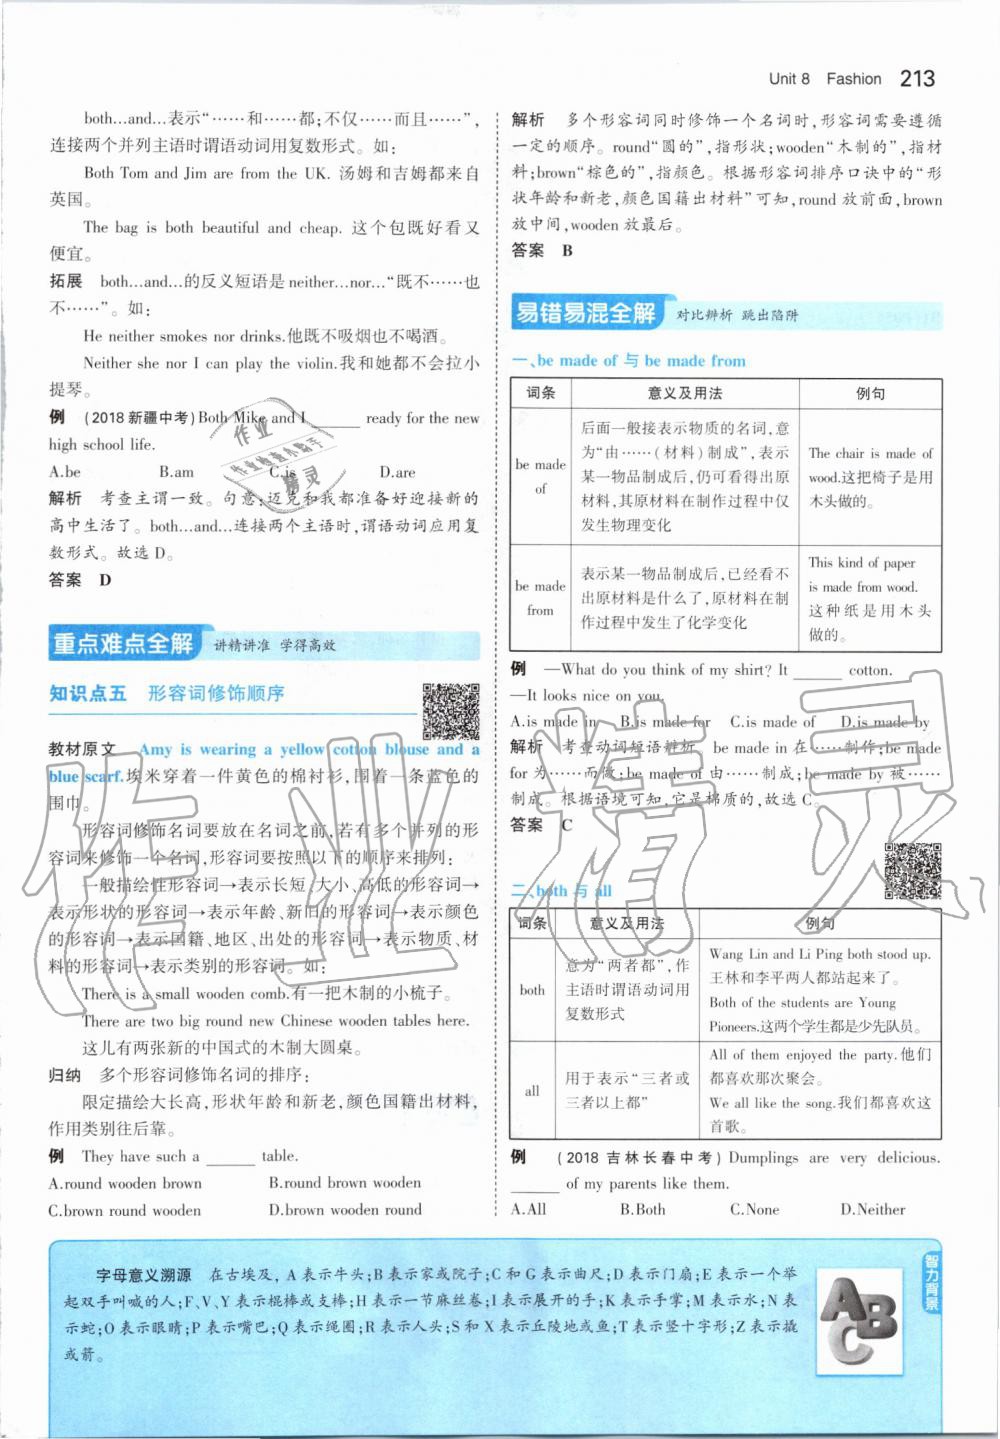 Unit 8 Fashion 213
both...and...表示“……和……都;不仅……而且……”,
连接两个并列主语时谓语动词用复数形式。如:
Both Tom and Jim are from the UK. 汤姆和吉姆都来自
英国。
The bag is both beautiful and cheap. 这个包既好看又
便宜。
拓展 both...and...的反义短语是neither...nor...“既不……也
不……”。如:
He neither smokes nor drinks.他既不吸烟也不喝酒。
Neither she nor I can play the violin.我和她都不会拉小
提琴。
例 (2018新疆中考)Both Mike and I ______ ready for the new
high school life.
A.be B.am C.is D.are
解析 考查主谓一致。句意:迈克和我都准备好迎接新的
高中生活了。both...and...连接两个主语时,谓语动词应用复
数形式。故选D。
答案 D
重点难点全解 讲精讲准 学得高效
知识点五 形容词修饰顺序
教材原文 Amy is wearing a yellow cotton blouse and a
blue scarf.埃米穿着一件黄色的棉衬衫,围着一条蓝色的
围巾。
形容词修饰名词要放在名词之前,若有多个并列的形
容词来修饰一个名词,形容词要按照以下的顺序来排列:
一般描绘性形容词→表示长短、大小、高低的形容词→
表示形状的形容词→表示年龄、新旧的形容词→表示颜色
的形容词→表示国籍、地区、出处的形容词→表示物质、材
料的形容词→表示类别的形容词。如:
There is a small wooden comb.有一把木制的小梳子。
There are two big round new Chinese wooden tables here.
这儿有两张新的中国式的木制大圆桌。
归纳 多个形容词修饰名词的排序:
限定描绘大长高,形状年龄和新老,颜色国籍出材料,
作用类别往后靠。
例 They have such a ______ table.
A.round wooden brown B.round brown wooden
C.brown round wooden D.brown wooden round
解析 多个形容词同时修饰一个名词时,形容词需要遵循
一定的顺序。round“圆的”,指形状;wooden“木制的”,指材
料;brown“棕色的”,指颜色。根据形容词排序口诀中的“形
状年龄和新老,颜色国籍出材料”可知,round 放前面,brown
放中间,wooden 放最后。
答案 B
易错易混全解 对比辨析 跳出陷阱
一、be made of 与 be made from
词条 意义及用法 例句
be made of 后面一般接表示物质的名词,意
为“由……(材料)制成”,表示
某一物品制成后,仍可看得出原
材料,其原材料在制作过程中仅
发生物理变化
The chair is made of
wood.这把椅子是用
木头做的。
be made from 表示某一物品制成后,已经看不
出原材料是什么了,原材料在制
作过程中发生了化学变化
This kind of paper
is made from wood.
这种纸是用木头
做的。
例 —What do you think of my shirt? It ______ cotton.
—It looks nice on you.
A.is made in B.is made for C.is made of D.is made by
解析 考查动词短语辨析。be made in 在……制作;be made
for 为……而做;be made of 由……制成;be made by 被……
制成。根据语境可知,它是棉质的,故选C。
答案 C
二、both 与 all
词条 意义及用法 例句
both 意为“两者都”,作
主语时谓语动词用
复数形式
Wang Lin and Li Ping both stood up.
王林和李平两人都站起来了。
Both of the students are Young
Pioneers.这两个学生都是少先队员。
all 用于表示“三者或
三者以上都”
All of them enjoyed the party.他们
都喜欢那次聚会。
We all like the song.我们都喜欢这
首歌。
例 (2018吉林长春中考) Dumplings are very delicious.
______ of my parents like them.
A.All B.Both C.None D.Neither
字母意义溯源 在古埃及, A表示牛头;B表示家或院子;C和G表示曲尺;D表示门扇;E表示一个举
起双手叫喊的人;F、V、Y表示棍棒或支棒;H表示一节麻丝卷;I表示展开的手;K表示手掌;M表示水;N表
示蛇;O表示眼睛;P表示嘴巴;Q表示绳圈;R表示人头;S和X表示丘陵地或鱼;T表示竖十字形;Z表示撬
或箭。
智力背景
ABC
作业精灵